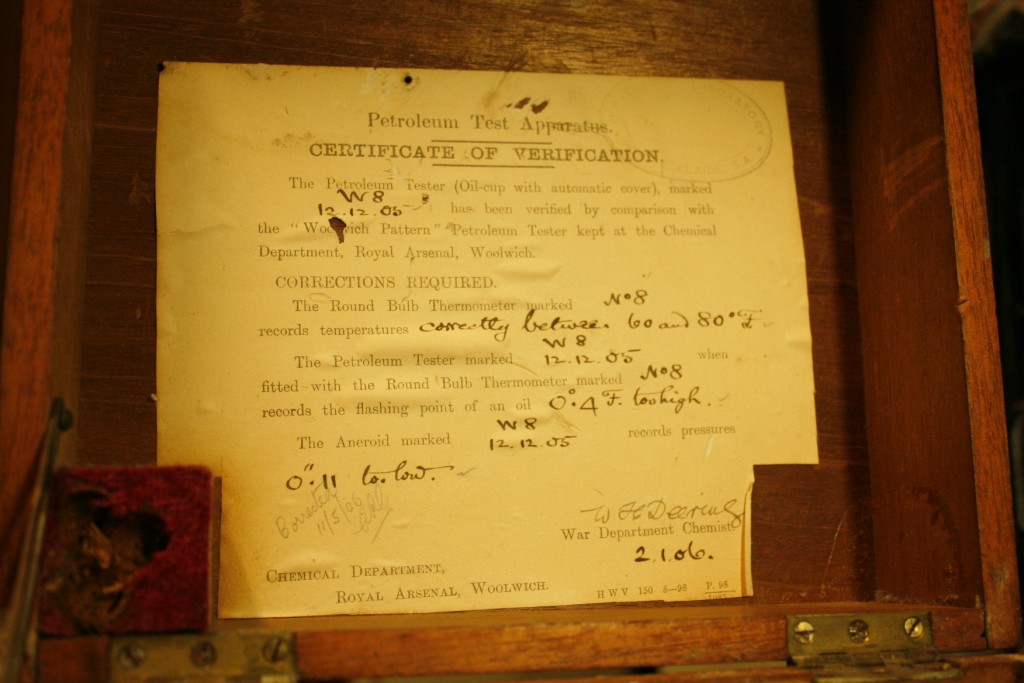 Petroleum Test Apparatus.
CERTIFICATE OF VERIFICATION.
The Petroleum Tester (Oil-cup with automatic cover), marked
W 8
12.12.05 has been verified by comparison with
the "Woolwich Pattern" Petroleum Tester kept at the Chemical
Department, Royal Arsenal, Woolwich.
CORRECTIONS REQUIRED.
The Round Bulb Thermometer marked No 8
records temperatures correctly between 60 and 80° F.
W 8
The Petroleum Tester marked 12.12.05 when
fitted with the Round Bulb Thermometer marked No 8
records the flashing point of an oil 0°.4 F. too high.
W 8
The Aneroid marked 12.12.05 records pressures
0".11 too low.
Corrected
11/5/06
W H Deering
War Department Chemist
2.1.06.
CHEMICAL DEPARTMENT,
ROYAL ARSENAL, WOOLWICH.
H W V 150 8—98 P. 98